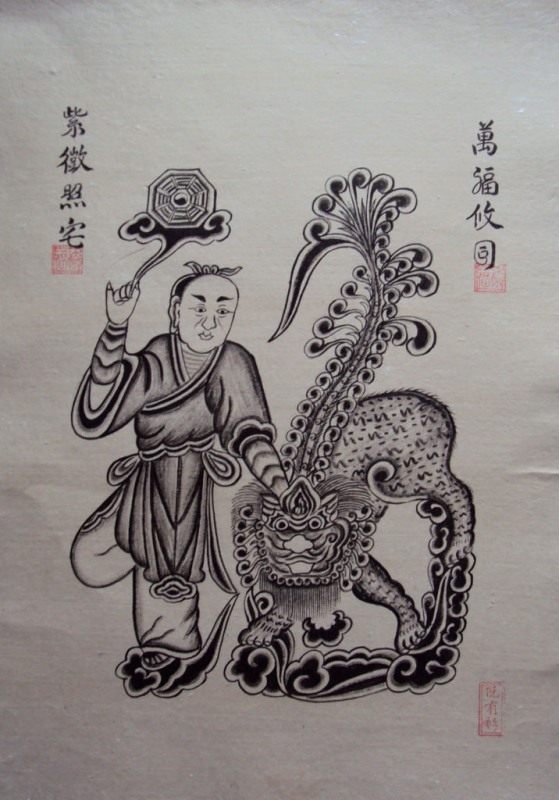 萬福攸同
紫微照宅
阮有